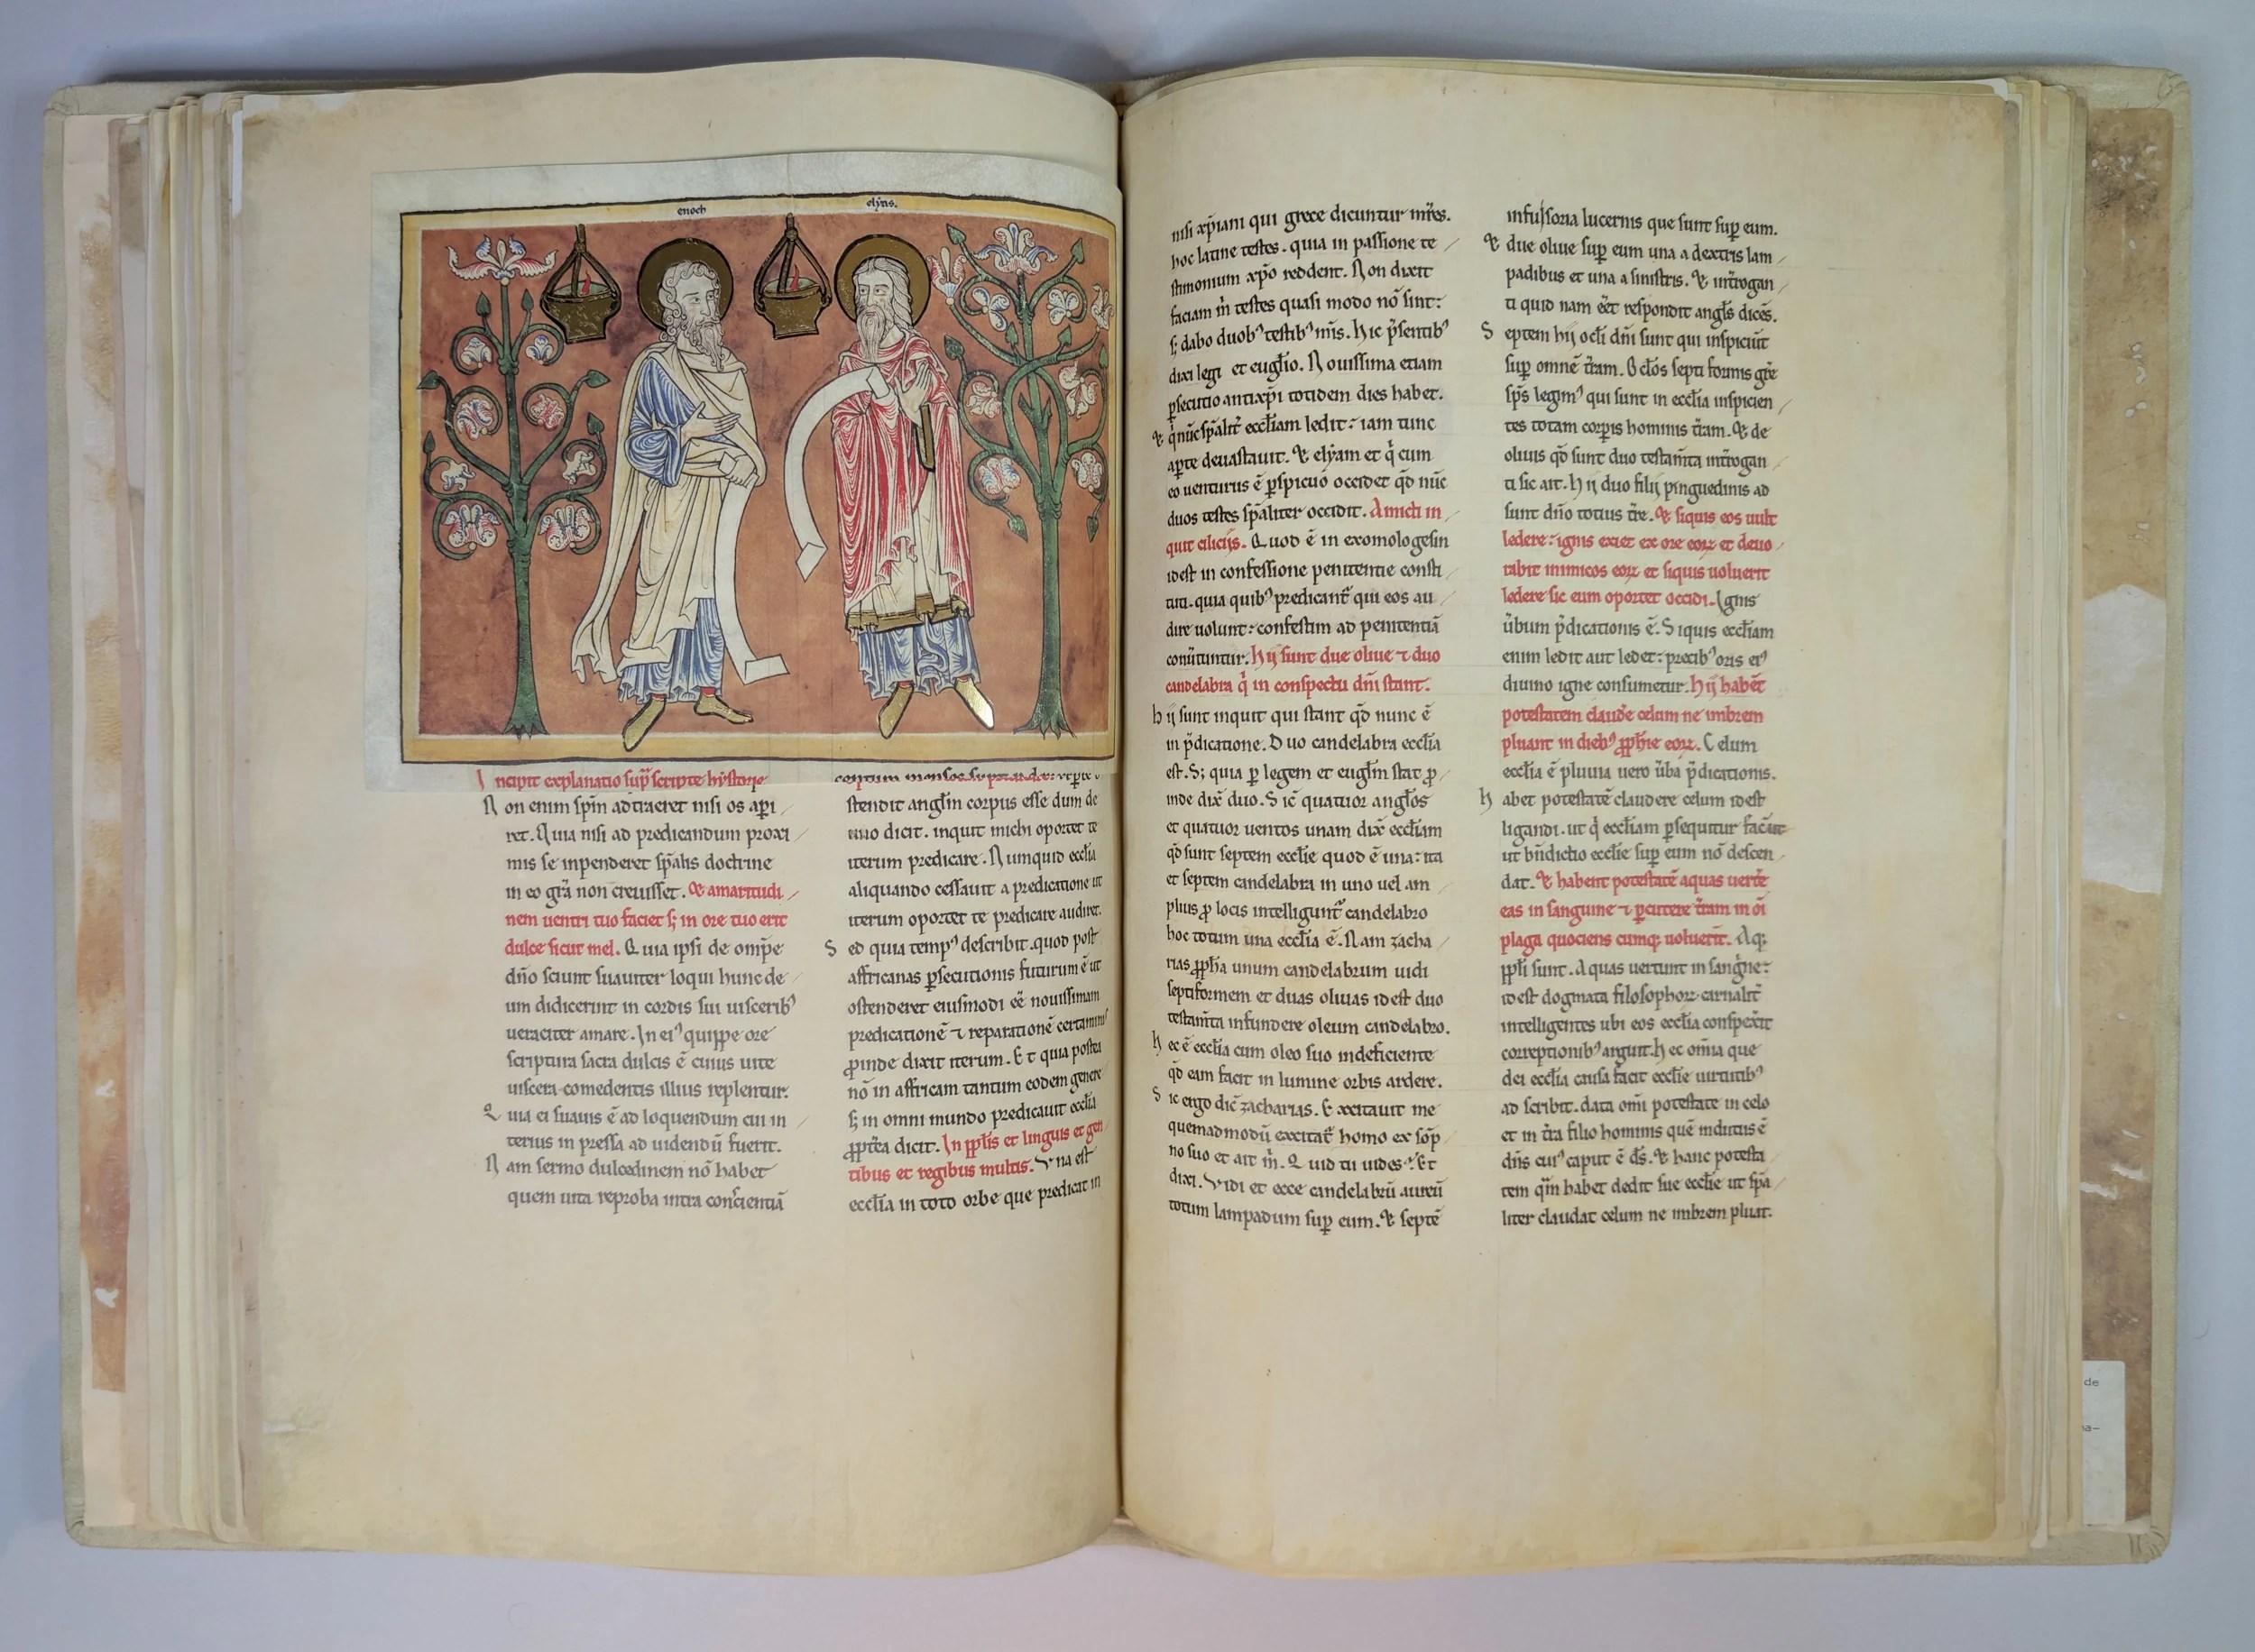 enoch
elyas.
Incipit explanatio sup̄ scripte hystorie
Non enim sp̄m adtraeret nisi os api
ret. Quia nisi ad predicandum proxi
mis se inpenderet sp̄alis doctrine
in eo gr̄a non creuisset. & amaritudi
nem uentri tuo faciet s; in ore tuo erit
dulce sicut mel. Quia ipsi de omp̄e
dn̄o sciunt suauiter loqui hunc de
um didicerint in cordis sui uisceribꝰ
ueraciter amare. In eiꝰ quippe ore
scriptura sacra dulcis ē cuius uite
uiscera comedentis illius replentur.
Quia ei suauis ē ad loquendum cui in
terius in pressa ad uidendū fuerit.
Nam sermo dulcedinem nō habet
quem uita reproba intra conscientiā
stendit angl̄m corpus esse dum de
uno dicit. inquit michi oportet te
iterum predicare. Numquid eccl̄ia
aliquando cessauit a predicatione ut
iterum oportet te predicare audiret.
Sed quia tempꝰ describit. quod post
affricanas ꝑsecutionis futurum ē ut
ostenderet eiusmodi eē nouissimam
predicationē ⁊ reparationē certaminis
ꝓinde dixit iterum. Et quia postea
nō in affricam tantum eodem genere
s; in omni mundo predicauit eccl̄ia
ꝓpt̄ea dicit. In ppl̄is et linguis et gen
tibus et regibus multis. Una est
eccl̄ia in toto orbe que predicat in
nisi xp̄iani qui grece dicuntur mr̄es.
hoc latine testes. quia in passione te
stimonium xp̄o reddent. Non dixit
faciam m̄ testes quasi modo nō sint:
s; dabo duobꝰ testibꝰ m̄is. Hic p̄sentibꝰ
dixi legi et eugl̄io. Nouissima etiam
ꝑsecutio antixp̄i totidem dies habet.
& q̄ nūc sp̄alit̄ eccl̄iam ledit: iam tunc
aꝑte deuastauit. & elyam et q̄ cum
eo uenturus ē ꝑspicuo occidet qd̄ nūc
duos testes sp̄aliter occidit. Amicti in
quit ciliciis. Quod ē in exomologesin
idest in confessione penitentie consti
tuti. quia quibꝰ predicant̄ qui eos au
dire uolunt: confestim ad penitentiā
conūtuntur. Hij sunt due oliue ⁊ duo
candelabra q̄ in conspectu dn̄i stant.
Hij sunt inquit qui stant qd̄ nunc ē
in p̄dicatione. Duo candelabra eccl̄ia
est. S; quia ꝑ legem et eugl̄m stat ꝓ
inde dix̄ duo. Sic̄ quatuor angl̄os
et quatuor uentos unam dix̄ eccl̄iam
qd̄ sunt septem eccl̄ie quod ē una: ita
et septem candelabra in uno uel am
plius ꝓ locis intelligunt̄ candelabro
hoc totum una eccl̄ia ē. Nam zacha
rias ꝓph̄a unum candelabrum uidi
septiformem et duas oliuas idest duo
testam̄ta infundere oleum candelabro.
Hec ē eccl̄ia cum oleo suo indeficiente
qd̄ eam facit in lumine orbis ardere.
Sic ergo dic̄ zacharias. Excitauit me
quemadmodū excitat̄ homo ex sōp
no suo et ait m̄. Quid tu uides? Et
dixi. Uidi et ecce candelabrū aureū
totum lampadum suꝑ eum. & septē
infusoria lucernis que sunt suꝑ eum.
& due oliue suꝑ eum una a dextris lam
padibus et una a sinistris. & int̄rogan
ti quid nam eēt respondit angl̄s dicēs.
Septem hij ocl̄i dn̄i sunt qui inspiciūt
suꝑ omnē t̄ram. Ocl̄os septi formis gr̄e
sp̄s legimꝰ qui sunt in eccl̄ia inspicien
tes totam corꝑis hominis t̄ram. & de
oliuis qd̄ sunt duo testam̄ta int̄rogan
ti sic ait. Hij duo filij pinguedinis ad
sunt dn̄o totius t̄re. & siquis eos uult
ledere: ignis exiet ex ore eoꝝ et deuo
rabit inimicos eoꝝ et siquis uoluerit
ledere sic eum oportet occidi. Ignis
ūbum p̄dicationis ē. Siquis eccl̄iam
enim ledit aut ledet: precibꝰ oris eiꝰ
diuino igne consumetur. Hij habēt
potestatem claud̄e celum ne imbrem
pluant in diebꝰ ꝓph̄ie eoꝝ. Celum
eccl̄ia ē pluuia uero ūba p̄dicationis.
Habet potestatē claudere celum idest
ligandi. ut q̄ eccl̄iam ꝑsequitur faciūt
ut bn̄dictio eccl̄ie suꝑ eum nō descen
dat. & habent potestatē aquas uert̄e
eas in sanguine ⁊ ꝑcutere t̄ram in oī
plaga quociens cumq; uoluerit. Aq;
ppl̄i sunt. Aquas uertunt in sanḡne:
idest dogmata filosophoꝝ carnalit̄
intelligentes ubi eos eccl̄ia conspex̄it
correptionibꝰ arguit. Hec om̄ia que
dei eccl̄ia causa facit eccl̄ie uirtutibꝰ
ad scribit. data om̄i potestate in celo
et in t̄ra filio hominis quē indutus ē
dn̄s cuiꝰ caput ē ds̄. & hanc potesta
tem qm̄ habet dedit sue eccl̄ie ut sp̄a
liter claudat celum ne imbrem pluat.
de